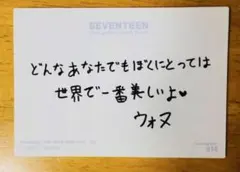 SEVENTEEN
どんなあなたでもぼくにとっては
世界で一番美しいよ♥
ウォヌ